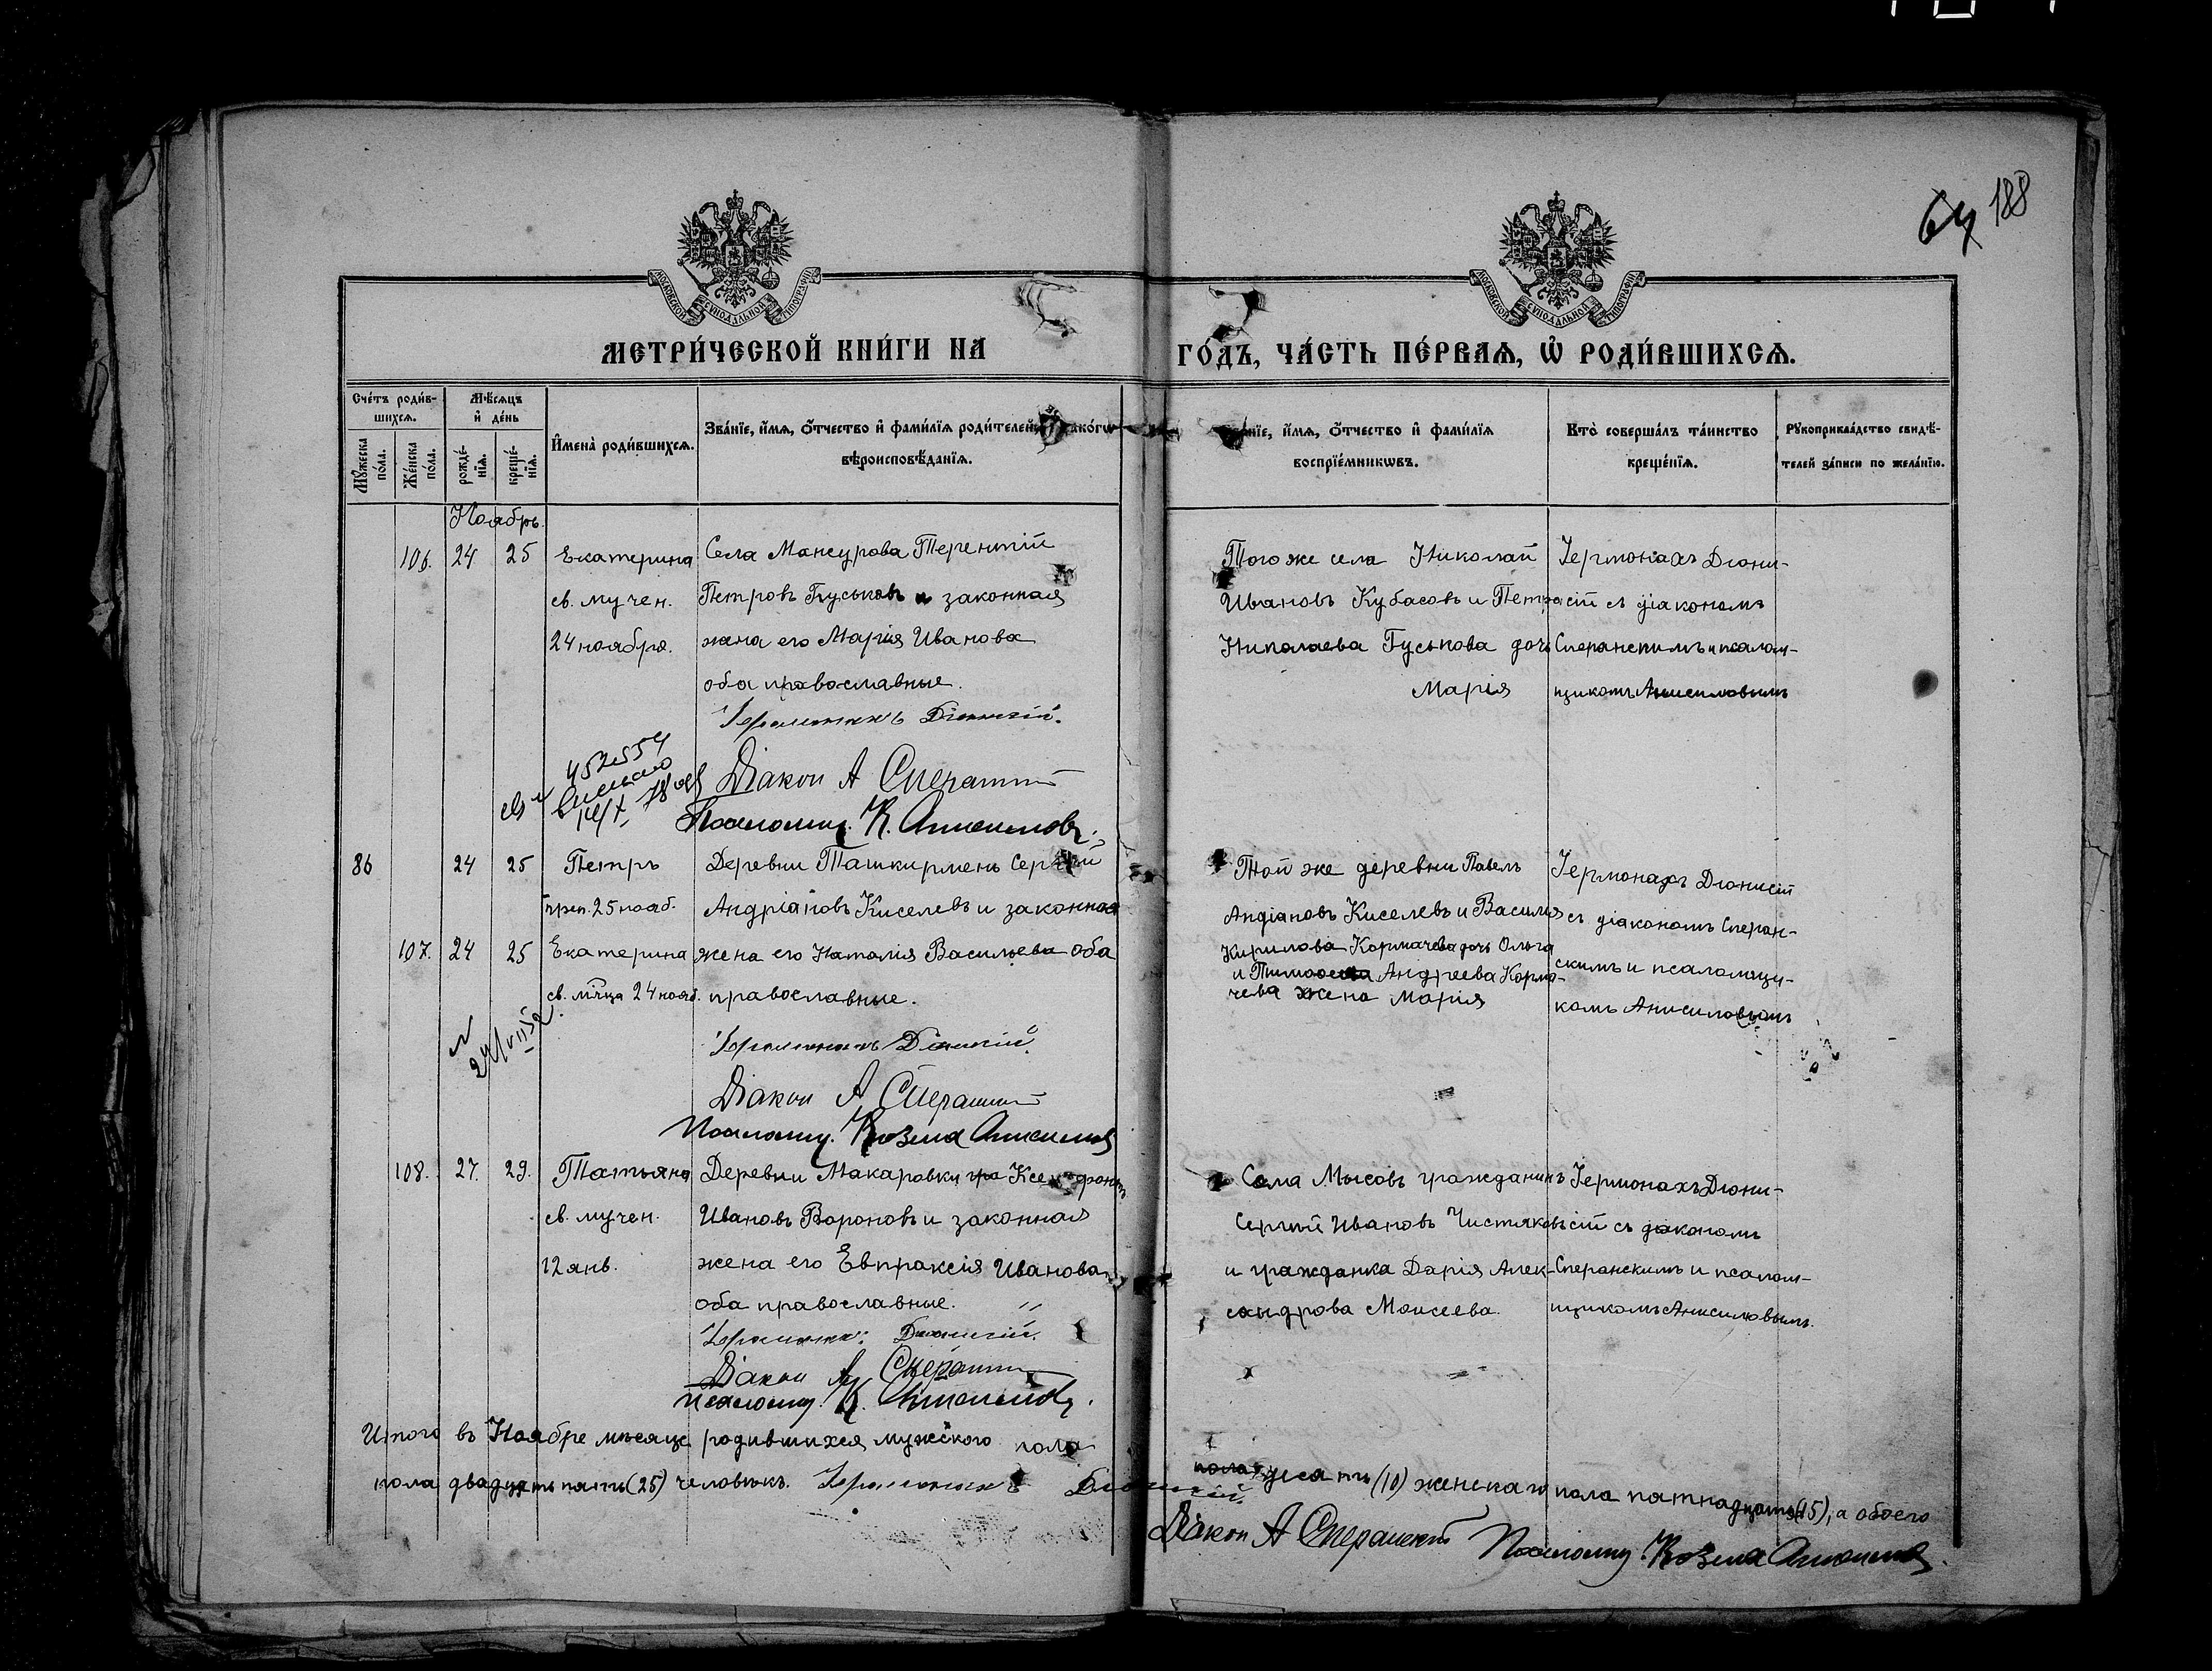 64 188
МОСКОВСКОЙ СѴНОДАЛЬНОЙ ТИПОГРАФІИ
МОСКОВСКОЙ СѴНОДАЛЬНОЙ ТИПОГРАФІИ
МЕТРИ́ЧЕСКОЙ КНИ́ГИ НА ГО́ДЪ, ЧА́СТЬ ПЕ́РВАѦ, Ѡ҆ РОДИ́ВШИХСѦ.
Сче́тъ роди́в-
шихсѧ.
Мꙋжеска по́ла.
Же́нска по́ла.
Мѣ́сѧцъ
и҆ де́нь
рожде́-
нїѧ.
креще́-
нїѧ.
И҆мена̀ роди́вшихсѧ.
Зва́нїе, и҆́мѧ, ѻ҆́тчество и҆ фами́лїѧ роди́телей, и҆ како́гѡ
вѣроисповѣ́данїѧ.
Зва́нїе, и҆́мѧ, ѻ҆́тчество и҆ фами́лїѧ
воспрїе́мникѡвъ.
Кто̀ соверша́лъ та́инство
креще́нїѧ.
Рꙋкоприкла́дство свидѣ́-
телей за́писи по жела́нїю.
Ноябрь.
106. 24 25 Екатерина Села Мансурова Терентій
св. мучен. Петровъ Гуськовъ и законная
24 ноября. жена его Марія Иванова
оба православные.
Іеромонахъ Діонисій.
Діакон А Сперанскій
Псаломщ. К. Анисимовъ.
452554
Того же села Николай
Ивановъ Кубасовъ и Петра
Николаева Гуськова дочь
Марія
Іермонахъ Діони-
сій съ діакономъ
Сперанскимъ и псалом-
щикомъ Анисимовымъ
86 24 25 Петръ Деревни Ташкирмень Сергѣй
преп. 25 нояб. Андріановъ Киселевъ и законная
107. 24 25 Екатерина жена его Наталія Васильева оба
св. м-ца 24 нояб. православные.
24/VII 52
Іеромонахъ Діонисій.
Діакон А Сперанскій
Псаломщ. Козма Анисимовъ
Той же деревни Павелъ
Андіановъ Киселевъ и Василія
Кирилова Кормачева дочь Ольга
и Тимофеева Андреева Корма-
чева жена Марія
Іермонахъ Діонисій
съ діакономъ Сперан-
скимъ и псаломщи-
комъ Анисимовымъ
108. 27. 29. Татьяна Деревни Макаровки гра Ксенофонтъ
св. мучен. Ивановъ Вороновъ и законная
12 янв. жена его Евпраксія Иванова
оба православные.
Іеромонах: Діонисій.
Діакон А Сперанскій
Псаломщ. К. Анисимовъ.
Села Мысовъ гражданинъ
Сергѣй Ивановъ Чистяковъ
и гражданка Дарія Алек-
сандрова Моисеева.
Іермонахъ Діони-
сій съ діакономъ
Сперанскимъ и псалом-
щикомъ Анисимовымъ.
Итого въ Ноябре мѣсяце родившихся мужского пола
пола десять (10) женскаго пола пятнадцать (15), а обоего
пола двадцать пять (25) человѣкъ. Іеромонахъ Діонисій.
Діакон А Сперанскій Псаломщ. Козма Анисимовъ.